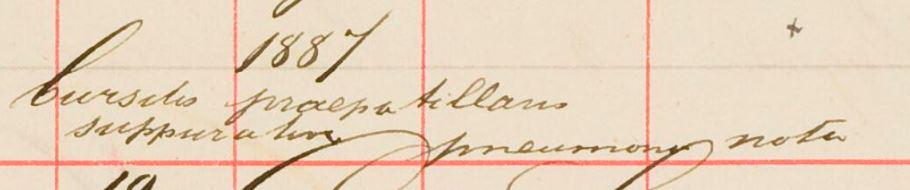 1887
Bursitis praepatillaris
suppurativa pneumony nota